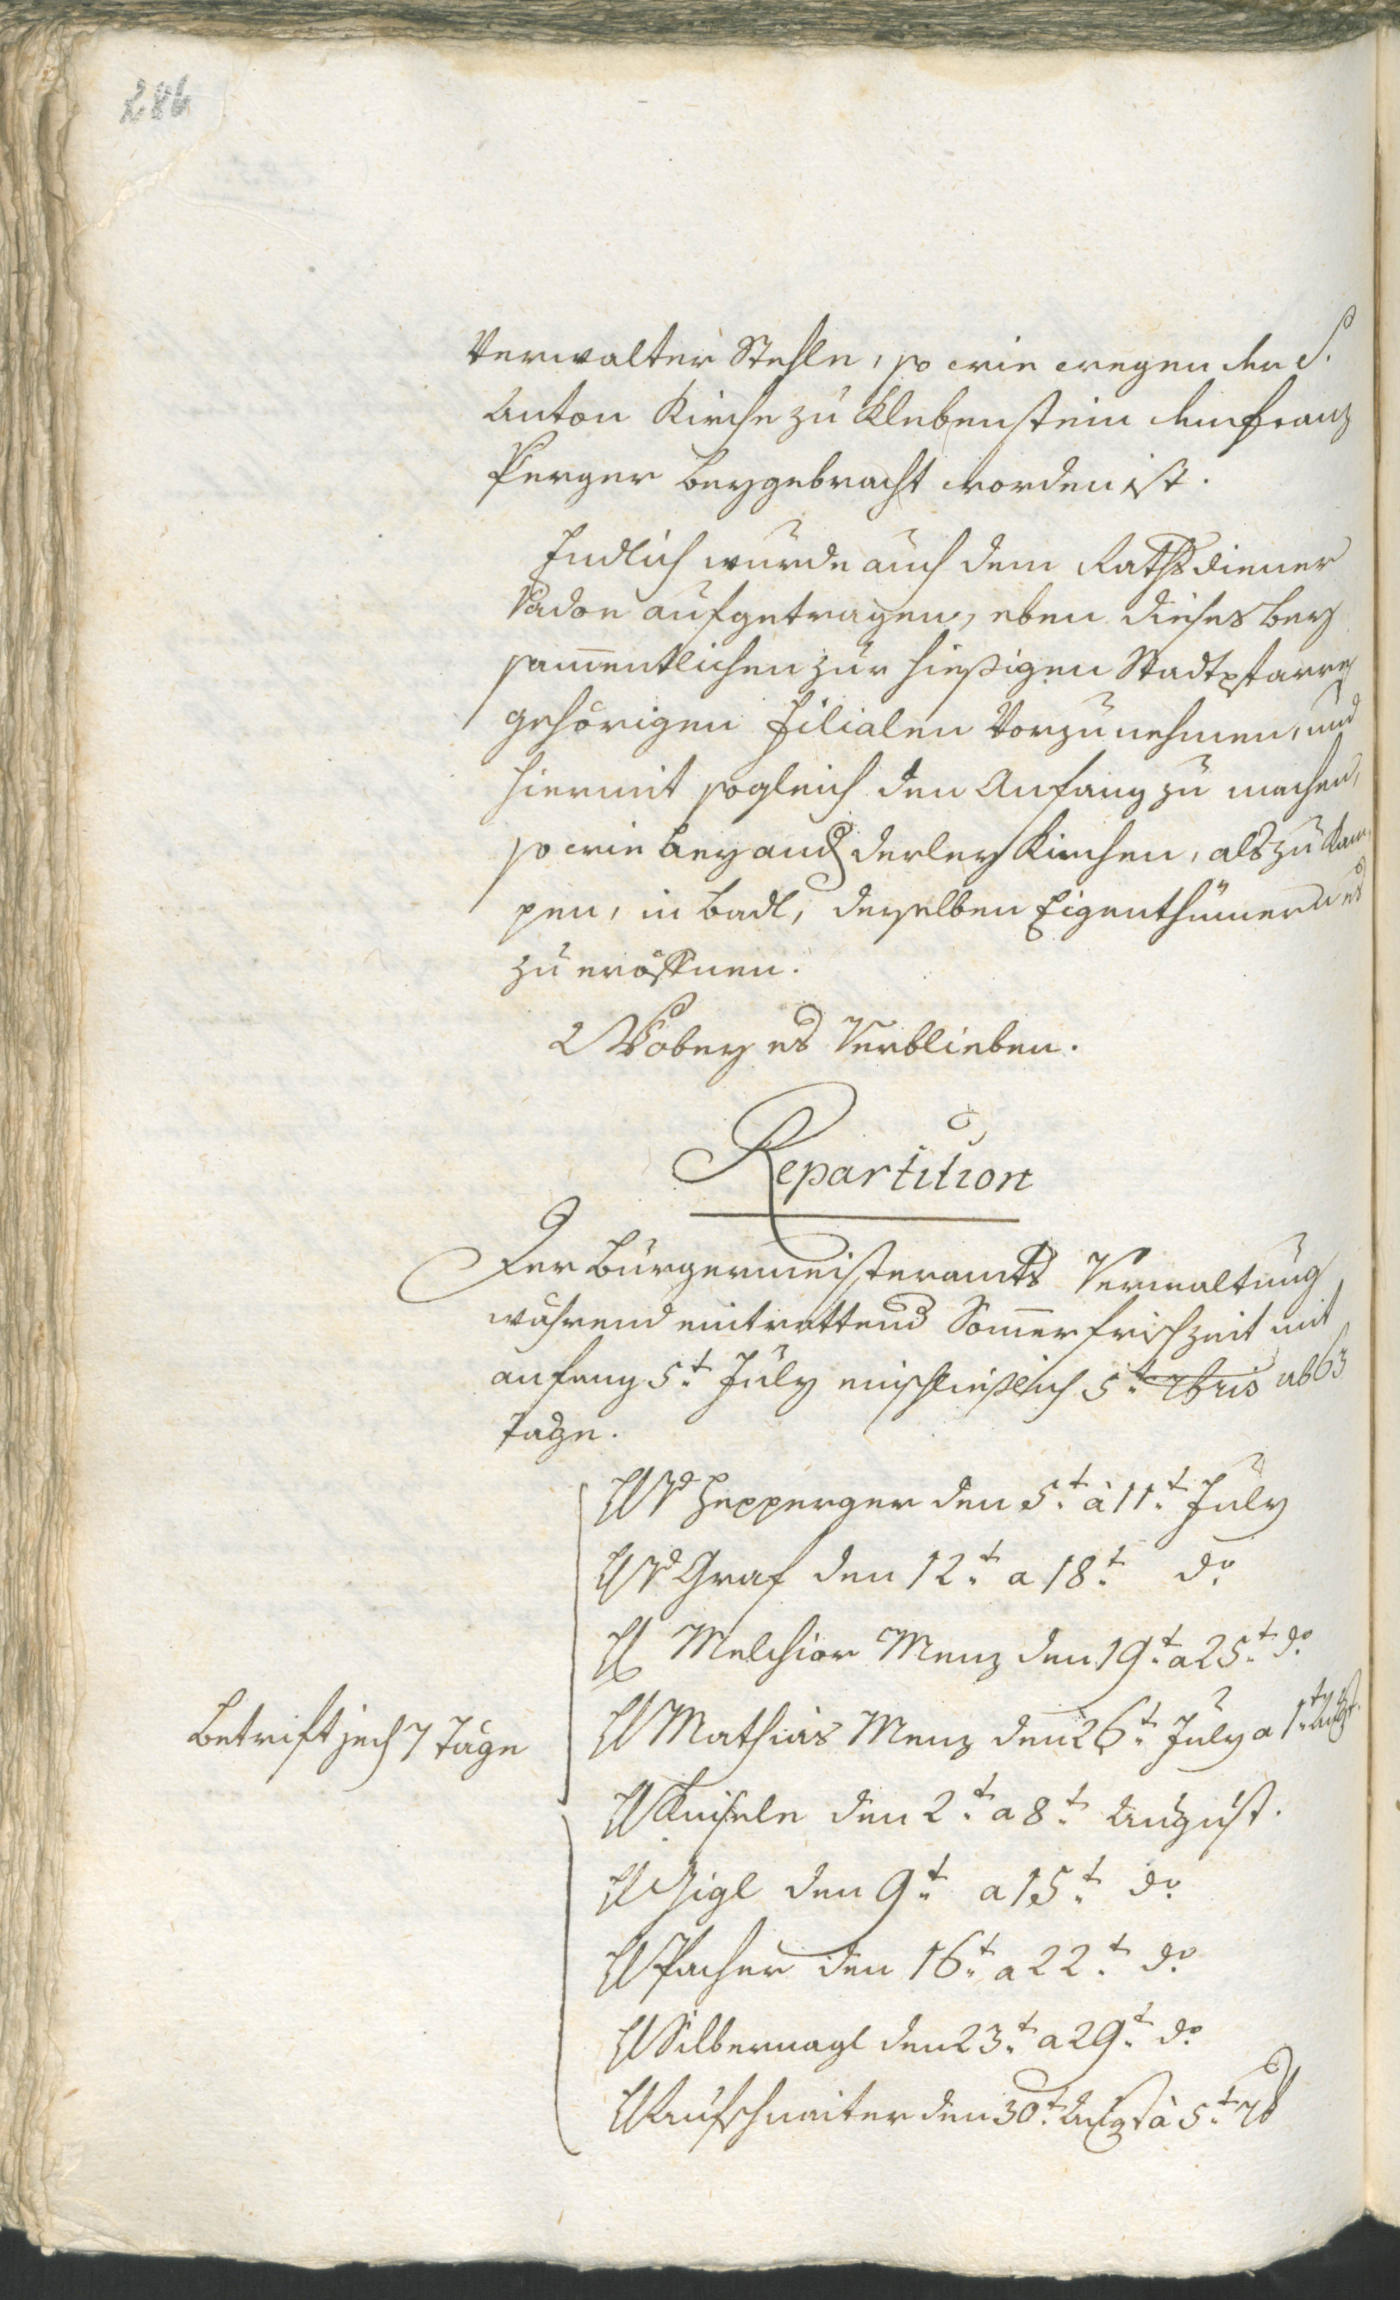 286
Verwalter Stehle, so wie wegen der S.
Anton Kirche zu Klebenstein dem Franz
Perger beygebracht worden ist.
Endlich wurde auch dem Rathsdiener
Vadon aufgetragen, eben dieses bey
sam̅entlichen zur hießigen Stadtpfarre
gehörigen Filialen Vorzunehmen, und
hiermit sogleich den Anfang zu machen,
so wie bey and derley Kirchen, als zu Kam-
pen, in Badl, deßelben Eigenthümern es
zu eröffnen.
Wobey es Verblieben.
Repartition
Der Bürgermeisteramts Verwaltung
während eintrettend Som̅erfrischzeit mit
anfang 5t July einschließlich 5t 7bris ab 63
Tage.
H v Hepperger den 5t à 11t July
H v Graf den 12t a 18t do
H Melchior Menz den 19t a 25t do
H Mathias Menz den 26t July a 1t Augst.
Betrift jed 7 Täge
H Knisele den 2t a 8t August.
H Gigl den 9t a 15t do
H Pacher den 16t a 22t do
H Silbernagl den 23t a 29t do
H Aufschnaiter den 30t Augst à 5t 7b